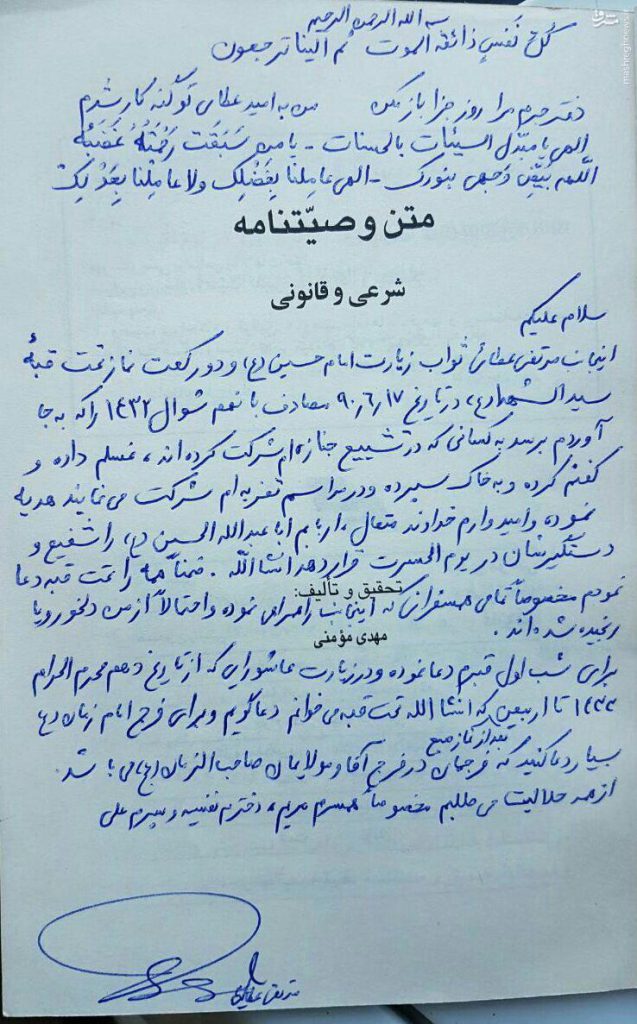 بسم الله الرحمن الرحیم
کُلُّ نَفسٍ ذائقه الموت ثم الینا ترجعون
دفتر جرم مرا روز جزا باز مکن من به امید عطای تو گنه کار شدم
الهی یا مبدّل السیئات بالحسنات - یا من سَبَقَت رَحمَتُهُ غَضَبَهُ
اللّهم بَیِّض وَجهی بنورک - الهی عامِلنا بِفَضلِک ولا عامِلنا بِعَدلِک
متن وصیّتنامه
شرعی و قانونی
سلام علیکم
اینجانب مرتضی عطائی ثواب زیارت امام حسین (ع) و دو رکعت نماز تحت قبهٔ
سید الشهدا (ع) در تاریخ ۹۰٫۶٫۱۷ مصادف با نهم شوال ۱۴۳۲ را که به جا
آوردم برسد به کسانی که در تشییع جنازه ام شرکت کرده اند، غسلم داده و
کفنم کرده و به خاک سپرده و در مراسم تعزیه ام شرکت می نمایند هدیه
نموده و امیدوارم خداوند متعال، اربابم ابا عبدالله الحسین (ع) را شفیع و
دستگیرشان در یوم الحسرت قرار دهد انشاالله. ضمناً همه را تحت قبه دعا
تحقیق و تألیف:
نمودم مخصوصاً تمامی همسفرانی که اینجانب را همراهی نموده و احتمالاً از من دلخور و یا
مهدی مؤمنی
رنجیده شده اند.
برای شب اول قبرم دعا نموده و در زیارت عاشورایی که از تاریخ دهم محرم الحرام
۱۴۳۳ تا اربعین که انشا الله تحت قبه می خوانم دعاگویم و برای فرج امام زمان (ع)
بعد از نماز صبح
بسیار دعا کنید که فرجمان در فرج آقا و مولایمان صاحب الزمان (ع) می باشد.
از همه حلالیت می طلبم مخصوصاً همسرم مریم، دخترم نفیسه و پسرم علی
مرتضی عطایی
مشرق
mashreghnews